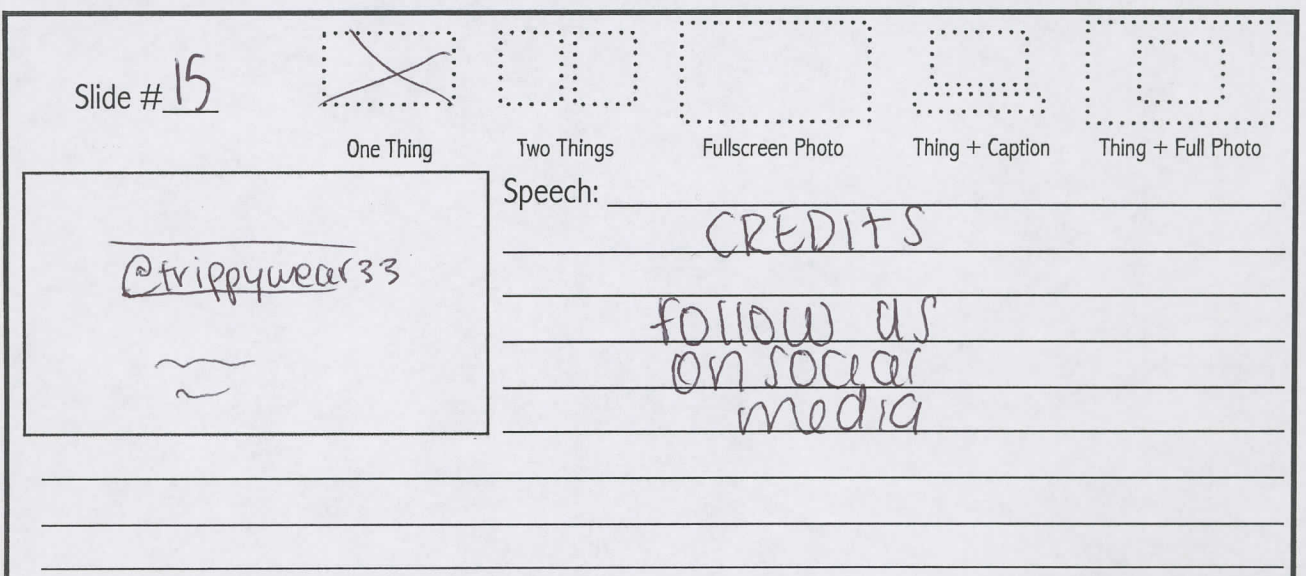 Slide # 15
One Thing
Two Things
Fullscreen Photo
Thing + Caption
Thing + Full Photo
@trippywear33
Speech:
CREDITS
follow us
on social
media